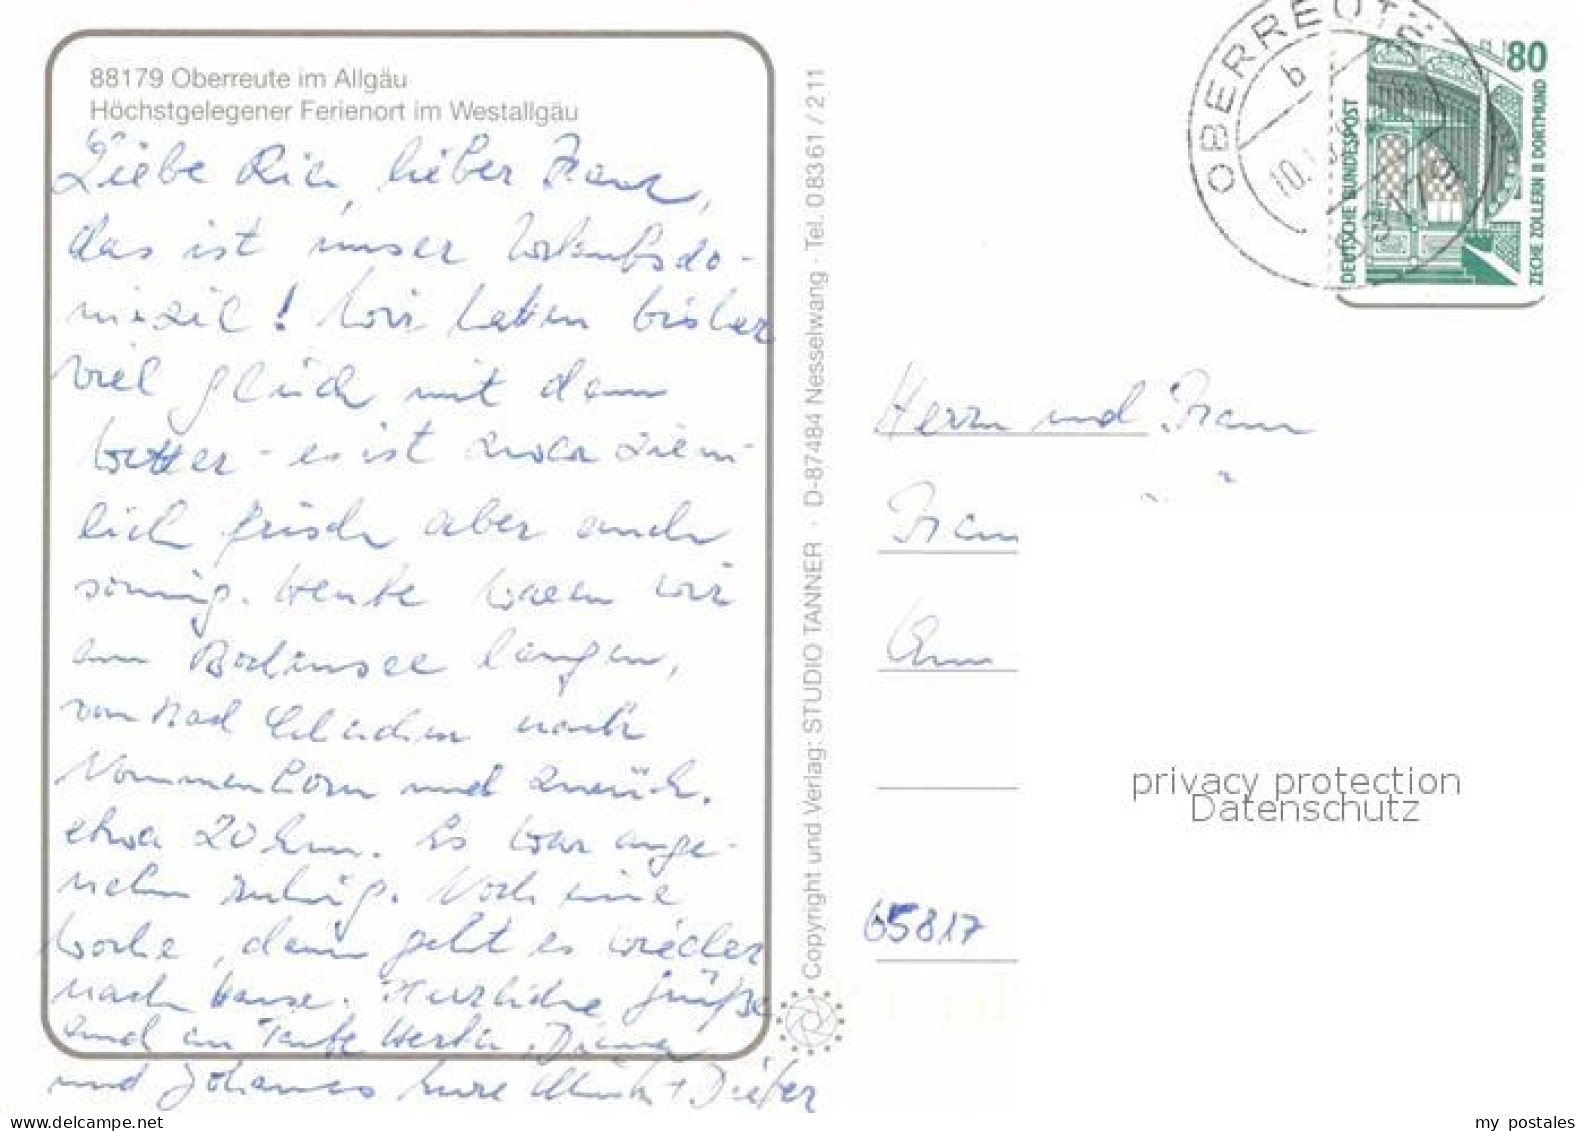 88179 Oberreute im Allgäu
Höchstgelegener Ferienort im Westallgäu
Liebe Ria, lieber Franz,
das ist unser Urlaubsdo-
mizil! Wir hatten bisher
viel Glück mit dem
Wetter - es ist zwar ziem-
lich frisch aber auch
sonnig. Heute waren wir
am Bodensee langen,
von Bad Schachen nach
Nonnenhorn und zurück.
etwa 20 km. Es war ange-
nehm ruhig. Noch eine
Woche, dann geht es wieder
nach Hause. Herzliche Grüße
und an Tante Herta,
und Johannes Eure + Dieter
Copyright und Verlag: STUDIO TANNER · D-87484 Nesselwang · Tel. 08361/211
OBERREUTE
b
10.
88179
80
DEUTSCHE BUNDESPOST
ZECHE ZOLLERN II DORTMUND
Herrn und Frau
65817
privacy protection
Datenschutz
www.delcampe.net
my_postales